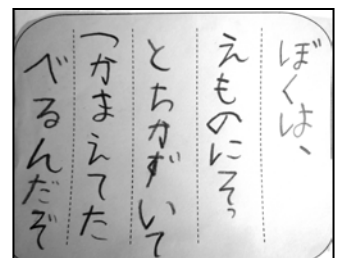 ぼくは、
えものにそっ
とちかずいて
つかまえてた
べるんだぞ